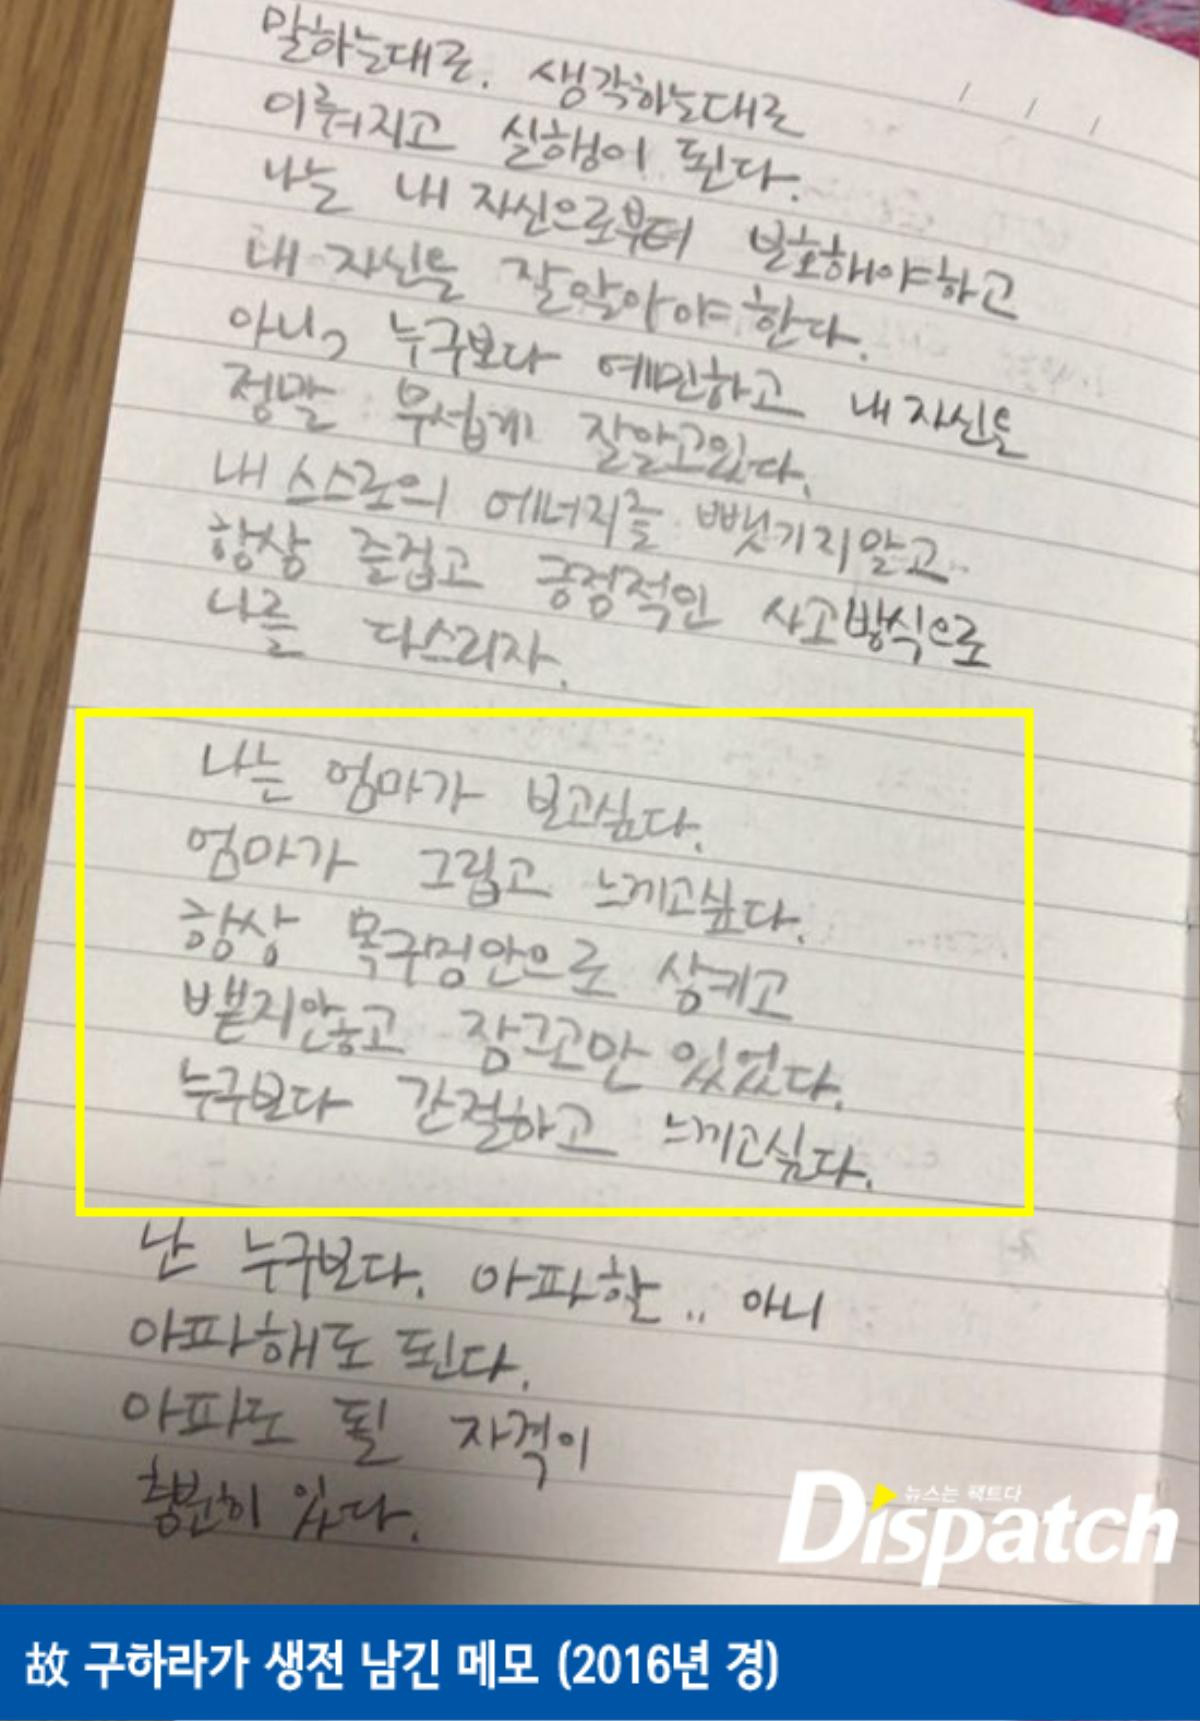 말하는대로. 생각하는대로
이뤄지고 실행이 된다.
나는 내 자신으로부터 보호해야하고
내 자신을 잘알아야 한다.
아니, 누구보다 예민하고 내 자신을
정말 무섭게 잘알고있다.
내 스스로의 에너지를 뺏기지말고
항상 즐겁고 긍정적인 사고방식으로
나를 다스리자.
나는 엄마가 보고싶다.
엄마가 그립고 느끼고싶다.
항상 목구멍안으로 삼키고
뱉지안홓고 잠그고만 있었다.
누구보다 간절하고 느끼고싶다.
난 누구보다. 아파할.. 아니
아파해도 된다.
아파도 될 자격이
충분히 있다.
뉴스는 팩트다
Dispatch
故 구하라가 생전 남긴 메모 (2016년 경)